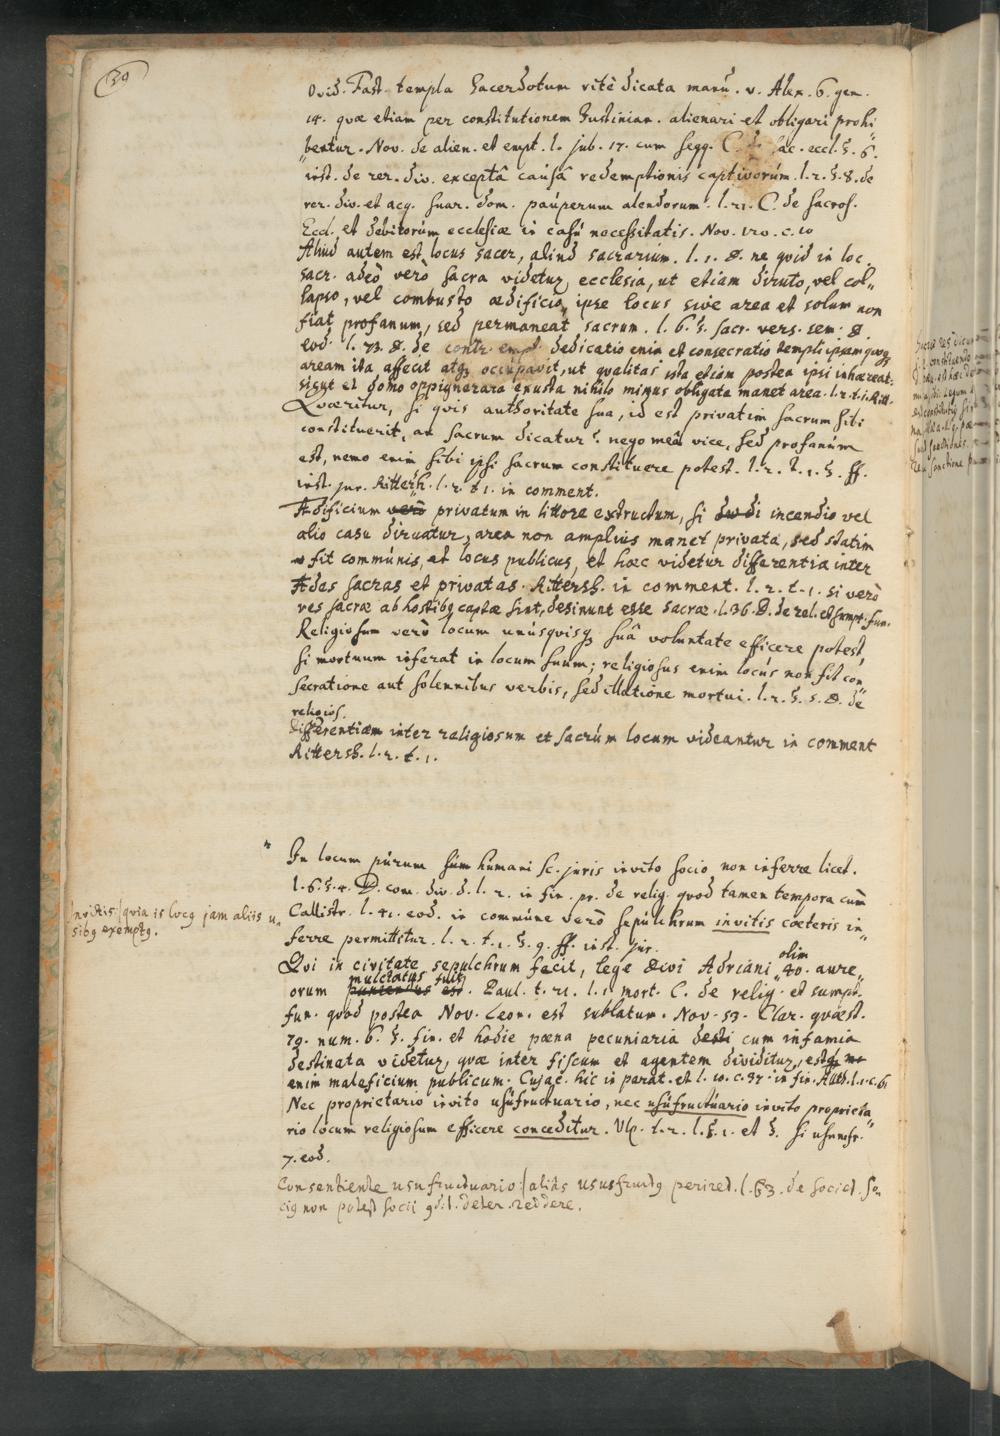 30
Ovid. Fast. templa Sacerdotum ritè dicata manú. v. Alex. 6. gen.
14. quæ etiam per constitutionem Justinian. alienari et obligari prohi
bentur. Nov. de alien. et empt. l. jub. 17. cum seqq. C. de sac. eccl. §. 6.
inst. de rer. div. exceptâ caúsâ redemptionis captivorúm. l. 2. §. 8. de
rer. div. et acq. suar. dom. paúperum alendorum. l. 21. C. de sacros.
Eccl. et debitorúm ecclesiæ in casú necessitatis. Nov. 120. c. 10
Aliud autem est locus sacer, aliud sacrariúm. l. 1. D. ne quid in loc.
sacr. adeò verò sacra videtur ecclesia, ut etiam diruto, vel col„
lapso, vel combusto ædificio, ipse locus sive area et solum non
fiat profanum, sed permaneat sacrum. l. 6. §. sacr. vers. sem. D.
eod. l. 73. D. de contr. empt. dedicatio enim et consecratio templi ipsam quoq;
aream ita affecit atq; occupavit, ut qualitas ista etiam postea ipsi inhæreat.
sicut et domo oppignerara exusta nihilo minus obligata manet area. l. 2. t. 1. Ritt.
Quæritur, si quis authoritate sua, id est privatim sacrum sibi
constituerit, an sacrum dicatur? nego meâ vice, sed profanúm
est, nemo enim sibi ipsi sacrum constituere potest. l. 2. t. 1. §. ff.
inst. jur. Rittersh. l. 2. t 1. in comment.
Ædificium verò privatum in littore extructum, si di incendio vel
alio casu diruatur, area non amplius manet privata, sed statim
fit commúnis, at locus publicus, et hæc videtur differentia inter
Ædas sacras et privatas. Rittersh. in comment. l. 2. t. 1. si verò
res sacræ ab hostibq captæ sint, desinunt esse sacræ. l. 36. D. de rel. et sumpt. fun.
Religiosum verò locum unúsquisq; suâ voluntate efficere potest,
si mortuum inferat in locum suum; religiosus enim locús non fit con
secratione aut solennibus verbis, sed illatione mortui. l. 2. §. 5. D. de
religios.
Differentiæm inter raligiosum et sacrúm locum videantur in comment
Rittersh. l. 2. t. 1.
In locum púrum súm humani sc. juris invito socio non inferre licet.
l. 6. §. 4. D. com. div. d. l. 2. in fin. pr. de relig. quod tamen tempora cum
Callistr. l. 41. eod. in commúne verò sepulchrum invitis cæteris in„
ferre permittitur. l. 2. t. 1. §. 9. ff. inst. jur.
invitis: / quia is locq jam aliis u„
sibq exemptq.
Qui in civitate sepulchrum facit, lege Divi Adriani olim 40. aure„
orum mulctatus fuit puniendus est. Paul. t. 21. l. 1. mort. C. de relig. et sumpt.
fun. quod postea Nov. Leon. est sublatum. Nov. 53. Clar. quæst.
79. num. 6. §. fin. et hodie pœna pecuniaria desti cum infamia
destinata videtur, quæ inter fiscum et agentem dividitur, est
enim maleficium publicum. Cujac. hic in parat. et l. 10. c. 37. in fin. Auth. l. 1. c. 6.
Nec proprietario invito usúfructuario, nec usúfructúario invito proprieta„
rio locum religiosum efficere conceditur. Ulp. t. 2. l. §. 1. et §. si usumfr.
7. eod.
Consentiente usufructuario: / aliàs ususfructq periret. l. 63. de societ. so„
ciq non potest socii deter. reddere.